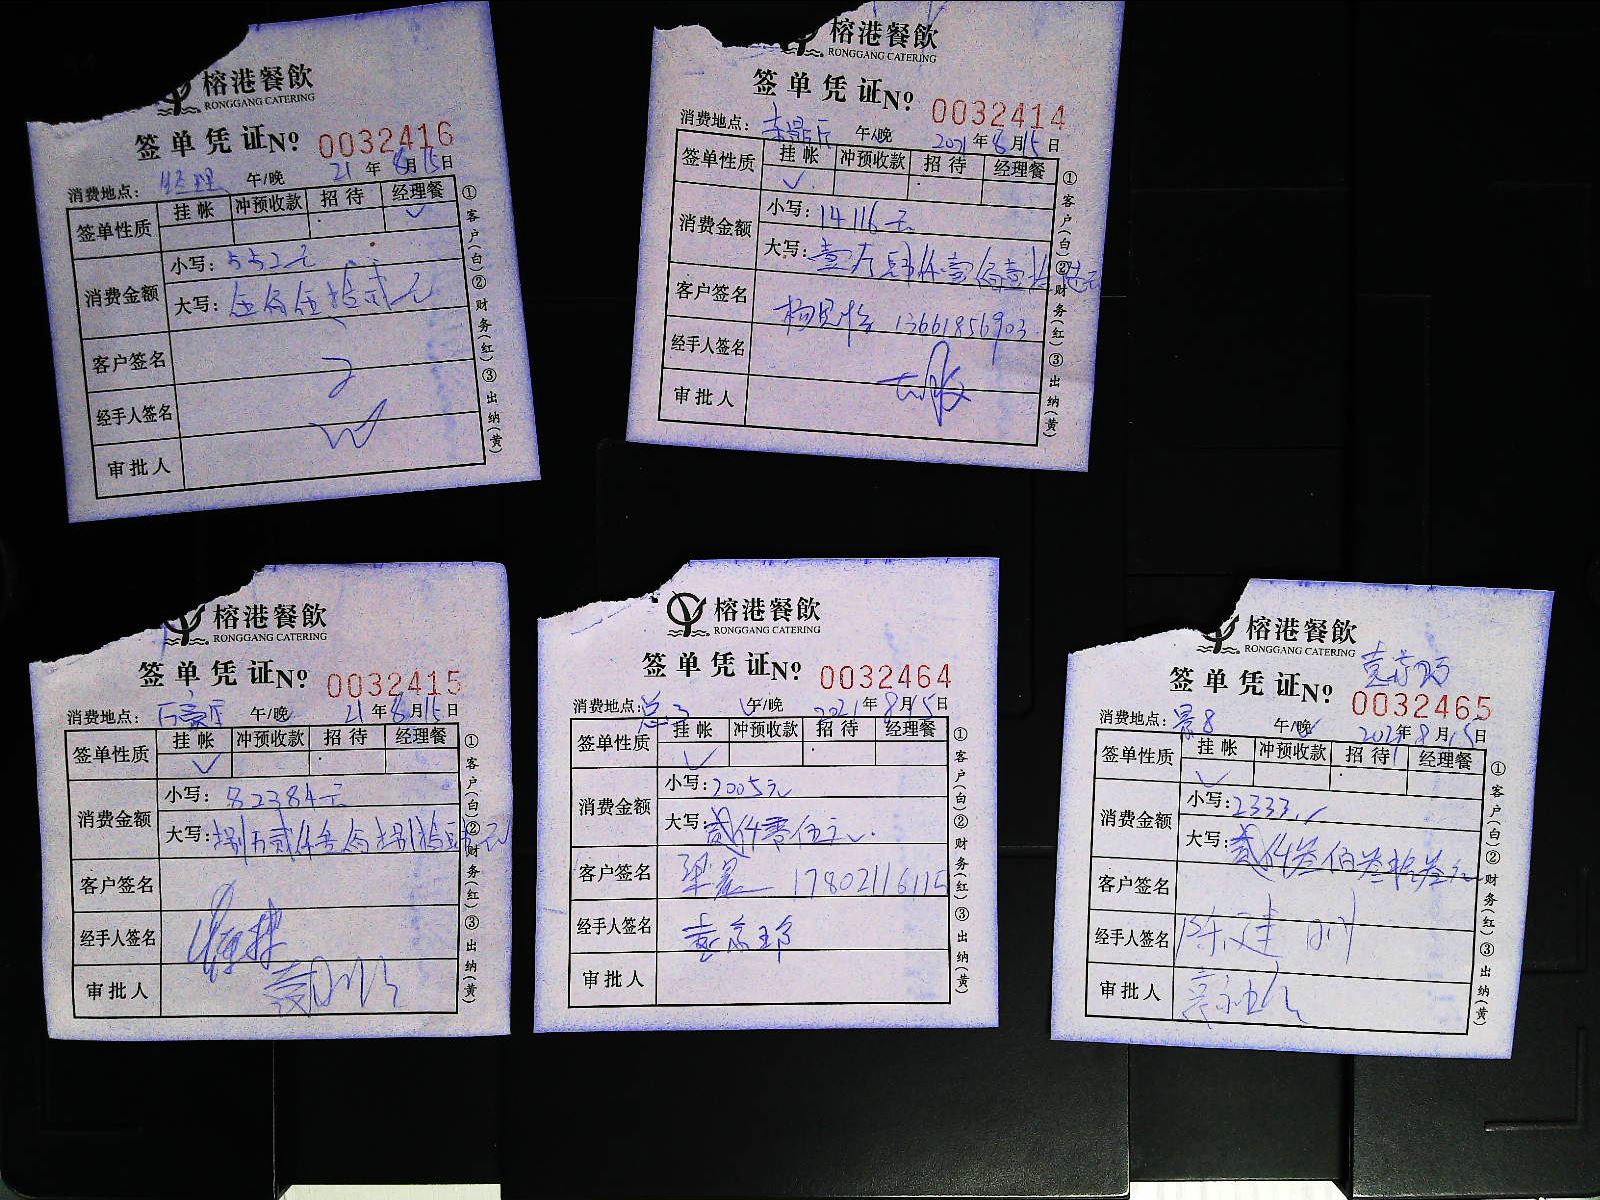 榕港餐飲
RONGGANG CATERING
签单凭证 No 0032416
消费地点: 经理 午/晚 21年8月15日
签单性质 挂帐 冲预收款 招待 经理餐
✓
消费金额 小写: 552元
大写: 伍佰伍拾贰元
客户签名
经手人签名
审批人
①客户(白)②财务(红)③出纳(黄)
榕港餐飲
RONGGANG CATERING
签单凭证 No 0032414
消费地点: 午/晚 2021年8月15日
签单性质 挂帐 冲预收款 招待 经理餐
✓
消费金额 小写: 14116元
大写: 壹万肆仟壹佰壹拾陆元
客户签名 13661856903
经手人签名
审批人
①客户(白)②财务(红)③出纳(黄)
榕港餐飲
RONGGANG CATERING
签单凭证 No 0032415
消费地点: 午/晚 21年8月15日
签单性质 挂帐 冲预收款 招待 经理餐
✓
消费金额 小写: 82384元
大写: 捌万贰仟叁佰捌拾肆元
客户签名
经手人签名
审批人
①客户(白)②财务(红)③出纳(黄)
榕港餐飲
RONGGANG CATERING
签单凭证 No 0032464
消费地点: 午/晚 2021年8月15日
签单性质 挂帐 冲预收款 招待 经理餐
✓
消费金额 小写: 2005元
大写: 贰仟零伍元
客户签名 17802116115
经手人签名
审批人
①客户(白)②财务(红)③出纳(黄)
榕港餐飲
RONGGANG CATERING
签单凭证 No 0032465
消费地点: 景8 午/晚 2021年8月15日
签单性质 挂帐 冲预收款 招待 经理餐
✓
消费金额 小写: 2333
大写: 贰仟叁佰叁拾叁元
客户签名
经手人签名 陈建刚
审批人
①客户(白)②财务(红)③出纳(黄)